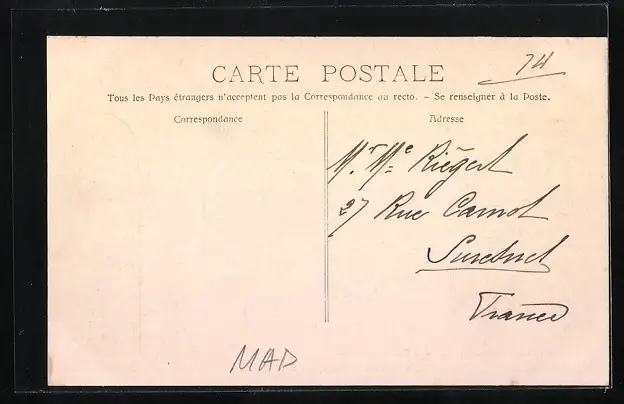 74
CARTE POSTALE
Tous les Pays étrangers n'acceptent pas la Correspondance au recto. – Se renseigner à la Poste.
Correspondance
Adresse
Mr Me Riegert
27 Rue Carnot
France
MAD